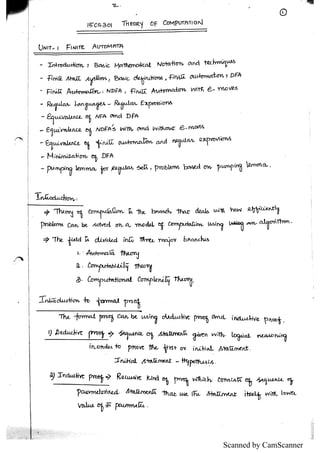 ①
15CS301 THEORY OF COMPUTATION
UNIT-1 FINITE AUTOMATA
- Introduction : Basic Mathematical Notation and techniques
- Finite State system, Basic definitions, Finite automaton : DFA
- Finite Automaton - NDFA, Finite Automaton with ε-moves
- Regular Languages - Regular Expression
- Equivalence of NFA and DFA
- Equivalence of NDFA's with and without ε-moves
- Equivalence of finite automaton and regular expressions
- Minimization of DFA
- Pumping lemma for Regular sets, problems based on pumping lemma.
Introduction:
⇒ Theory of Computation is the branch that deals with how efficiently
problems can be solved on a model of computation using an algorithm.
⇒ The field is divided into three major branches
1. Automata theory
2. Computability theory
3. Computational Complexity theory.
Introduction to formal proof
The formal proof can be using deductive proof and inductive proof.
1) Deductive proof ⇒ sequence of statements given with logical reasoning
in order to prove the first or initial statement.
Initial statement - Hypothesis.
2) Inductive proof ⇒ Recursive kind of proof which consists of sequence of
parameterized statements that use the statement itself with lower
value of its parameter.
Scanned by CamScanner